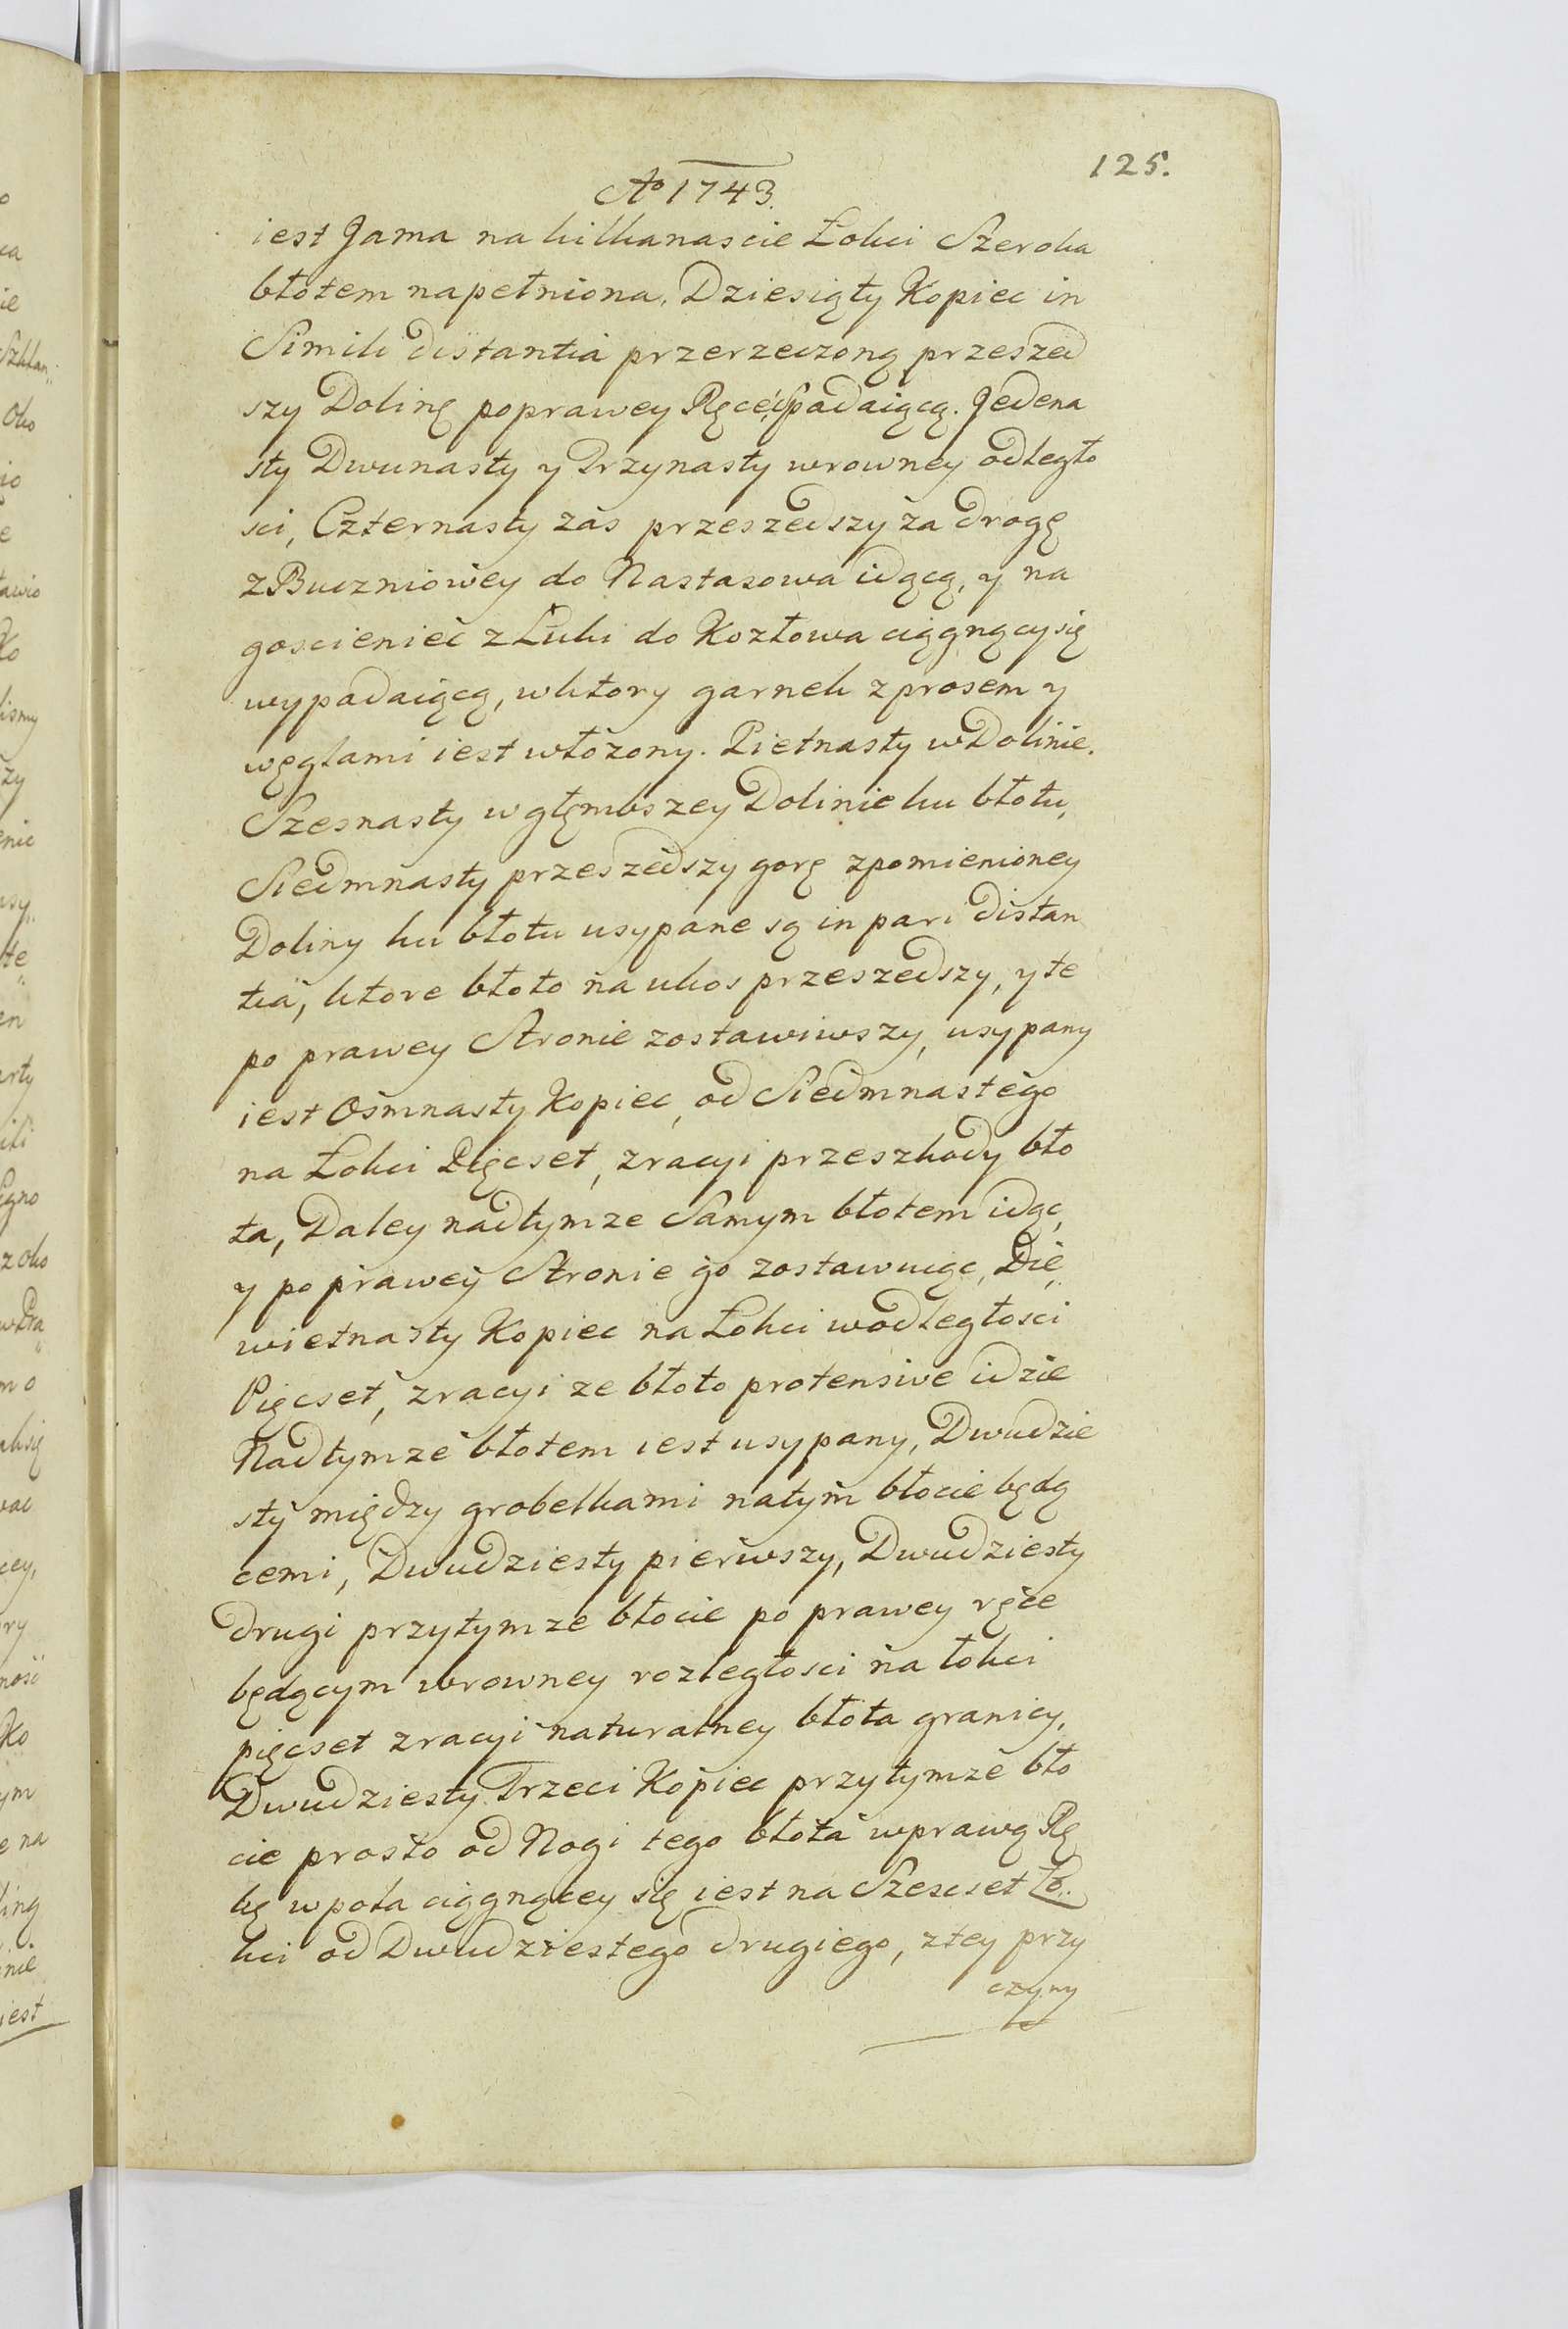 125.
Aº 1743.
iest Jama na kilkanascie Łokci Szeroka
błotem napełniona. Dziesiąty Kopiec in
Simili distantia przerzeczoną przeszed
szy Dolinę poprawey Ręce spadaiącą. Jedena
sty Dwunasty y Trzynasty wrowney odległo
sci, Czternasty zas przeszedszy za drogę
z Buczniowey do Nastasowa idącą, y na
goscieniec z Łuki do Kozłowa ciągnący się
wypadaiącą, wktory garnek z prosem y
węglami iest włozony. Pietnasty w Dolinie.
Szesnasty w głęmbszey Dolinie ku błotu,
Siedmnasty przeszedszy gorę zpomienioney
Doliny ku błotu usypane są in pari distan
tia, ktore błoto na ukos przeszedszy, y te
po prawey Stronie zostawiwszy, usypany
iest Osmnasty Kopiec, od Siedmnastego
na Łokci Pięcset, zracyi przeszkody bło
ta, Daley nadtymze Samym błotem idąc,
y po prawey Stronie go zostawuiąc, Die„
wietnasty Kopiec na Łokci wodległosci
Pięcset, zracyi ze błoto protensive idzie
Nadtymze błotem iest usypany, Dwudzie
sty między grobelkami natym błocie będą
cemi, Dwudziesty pierwszy, Dwudziesty
drugi przytymze błocie po prawey ręce
będącym wrowney rozległosci na łokci
pięcset zracyi naturalney błota granicy,
Dwudziesty Trzeci Kopiec przytymze bło
cie prosto od Nogi tego błota wprawą Rę
kę wpola ciągnącey się iest na Szescset Ło„
kci od Dwudziestego drugiego, ztey przy
czyny